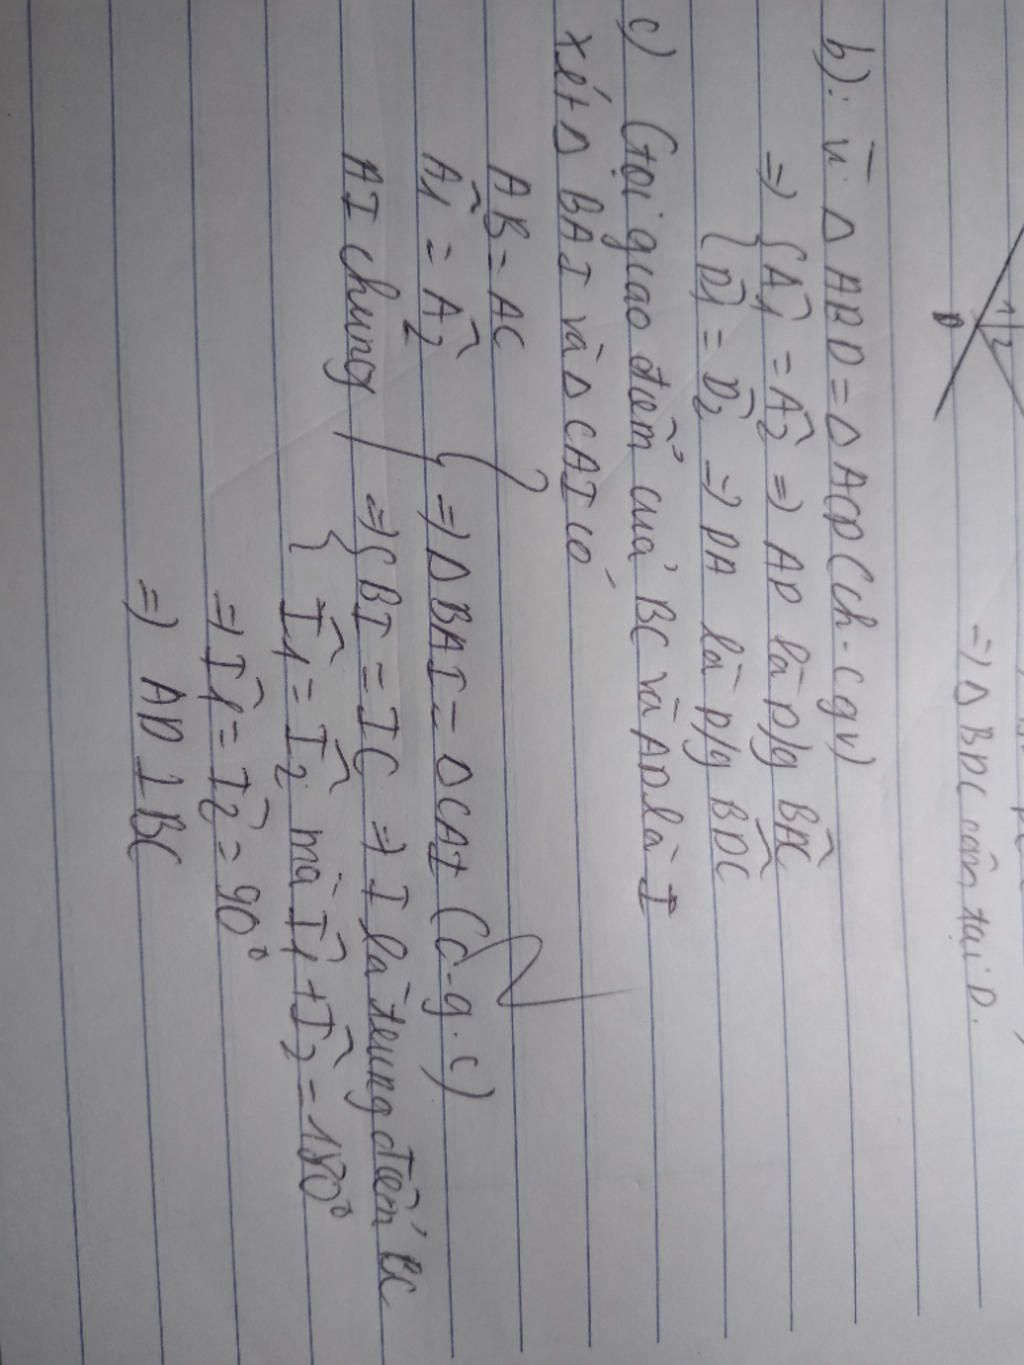 1 2
D
=> Δ BDC cân tại D.
b): Vì Δ ABD = Δ ACD (ch - cgv)
=> { Â1 = Â2 => AD là p/g BÂC
{ D̂1 = D̂2 => DA là p/g BD̂C
c) Gọi giao điểm của BC và AD là I
Xét Δ BAI và Δ CAI có
AB = AC
Â1 = Â2 } => Δ BAI = Δ CAI (c-g.c)
AI chung => { BI = IC => I là trung điểm BC
{ Î1 = Î2 mà Î1 + Î2 = 180°
=> Î1 = Î2 = 90°
=> AD ⊥ BC